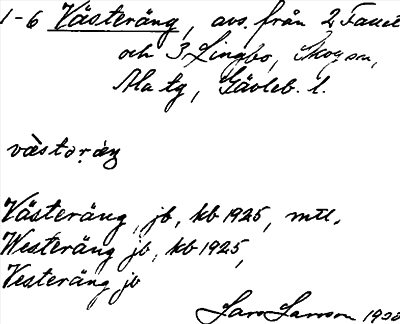 1-6 Västeräng, avs. från 2
och 3 Lingbo, Skog sn,
Ala tg, Gävleb. l.
Västeräng, jb, kb 1925, mtl.
Westeräng jb, kb 1925,
Vesteräng jb
Lars Larsson